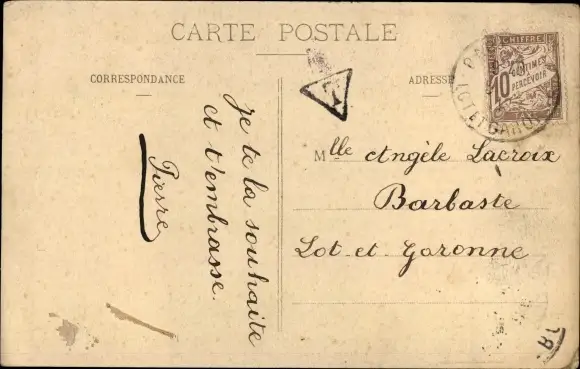 CARTE POSTALE
CORRESPONDANCE
ADRESSE
Je te la souhaite
et t'embrasse.
Pierre
T
CHIFFRE
10
CENTIMES
A
PERCEVOIR
LOT ET GARONNE
Mlle Angèle Lacroix
Barbaste
Lot et Garonne